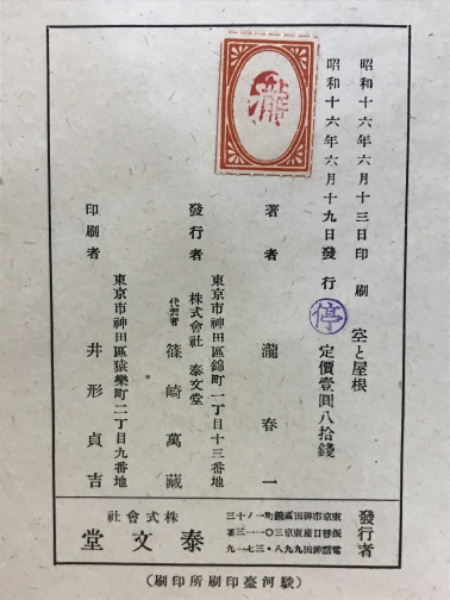 昭和十六年六月十三日印刷
昭和十六年六月十九日發行
空と屋根
停
定價壹圓八拾錢
瀧
著者 瀧春一
東京市神田區錦町一丁目十三番地
發行者 株式會社 泰文堂
代表者 篠崎萬藏
東京市神田區猿樂町二丁目九番地
印刷者 井形貞吉
發行者
東京市神田區錦町一ノ十三
株式會社
泰文堂
(駿河臺印刷所印刷)